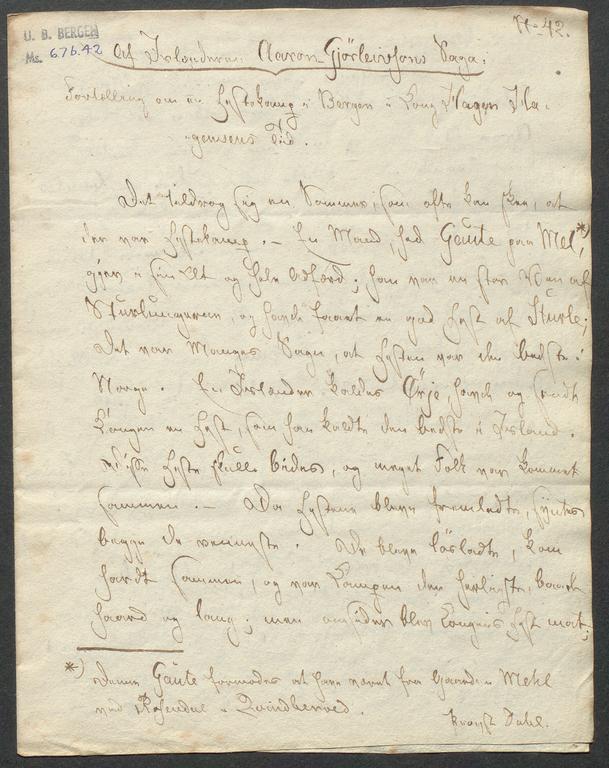 No 42.
U. B. BERGEN
Ms. 676.42
Af Islænderen Aaron Gjörleivsöns Saga.
Fortelling om en Hestekamp i Bergen i Kong Hagen Ha-
gensens Tid.
Det tildrog sig en Sommer, som ofte kan skee, at
der var Hestekamp. – En Mand, hed Gaute paa Mel,*)
gjæv i sin Æt og hele Adfærd; han var en stor Ven af
Sturlungerne, og havde faaet en god Hest af Sturle;
Det var Manges Sagn, at Hesten var den bedste i
Norge. En Islænder kaldes Ørje, havde og sendt
Kongen en Hest, som han kaldte den bedste i Island.
Disse Heste skulle bides, og meget Folk var kommet
sammen. – Da Hestene bleve fremledte, syntes
begge de vænneste. De bleve lösladte, kom
hardt sammen, og var Kampen den herligste, baade
haard og lang; men omsider blev Kongens Hest mat;
*) Denne Gaute formodes at have været fra Gaarden Mehl
ved Rosendal i Qvindherred.
Provst Dahl.